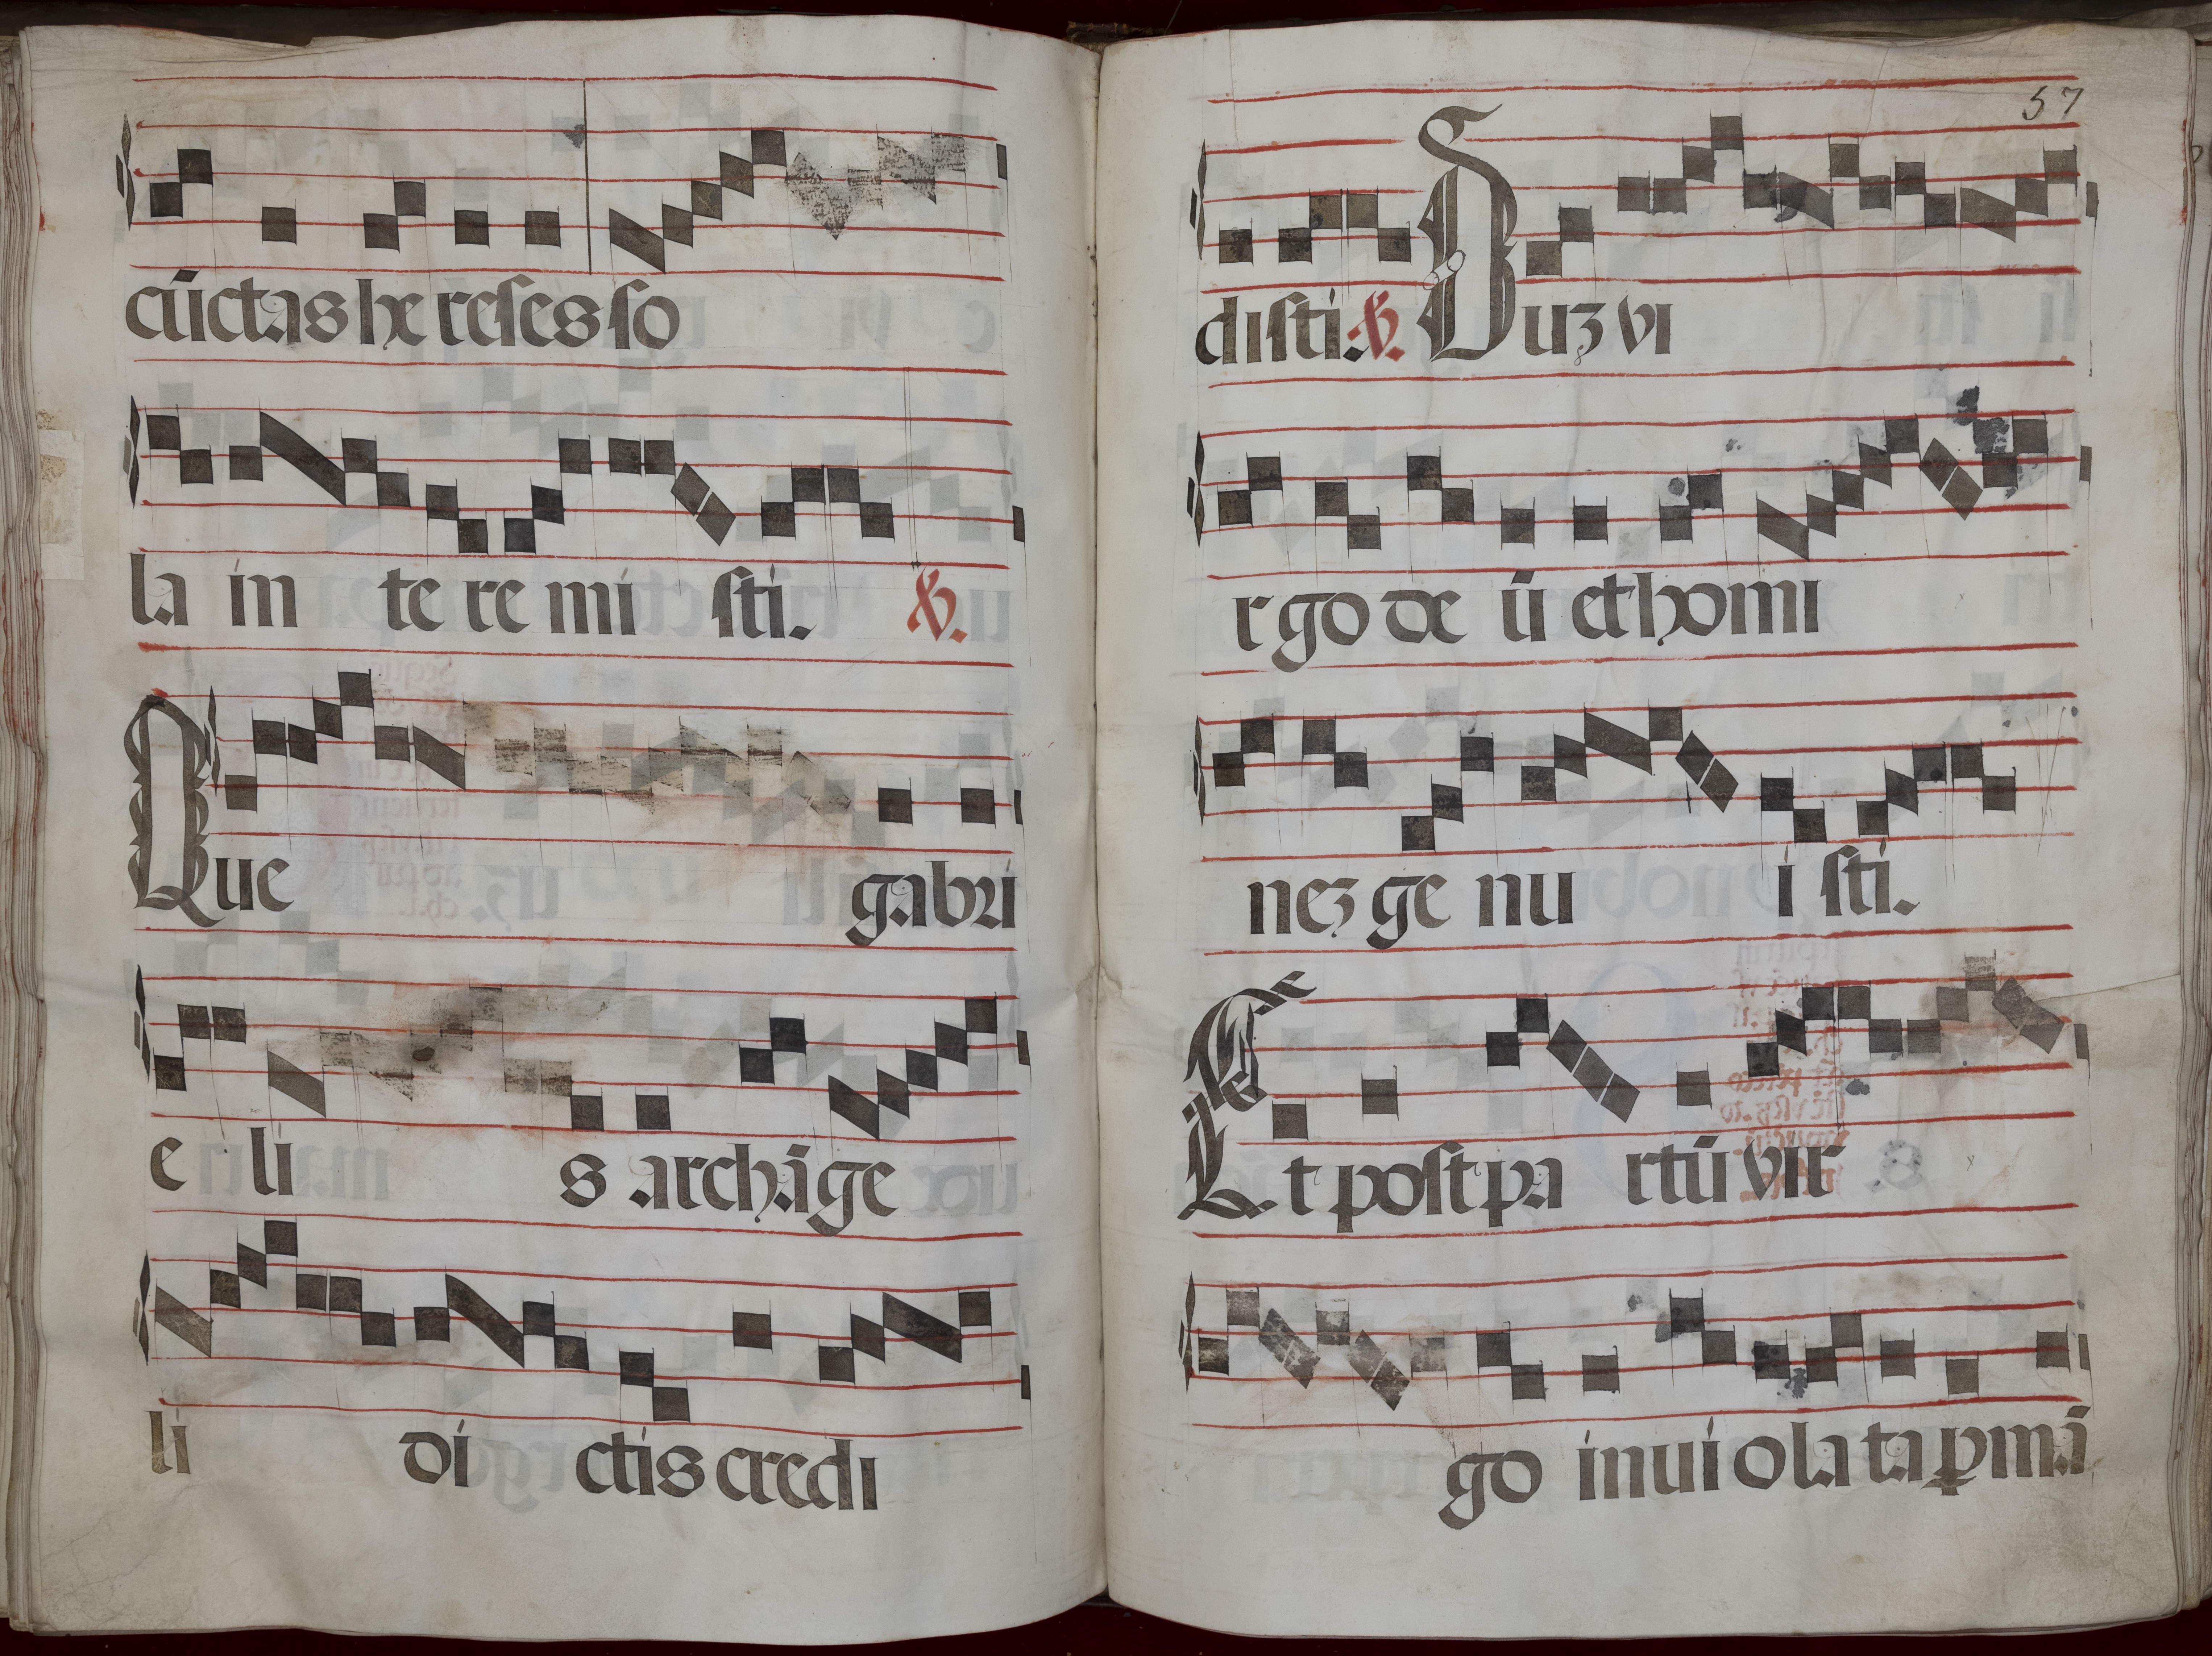 cūctas he reses so
la in te re mi sti. ℣.
Que gabri
e li s archāge
li di ctis credi
57
disti. ℣. Duz vi
rgo de ū et homi
nez ge nu i sti.
Et post pa rtū vir
go inuiolata ꝑmā